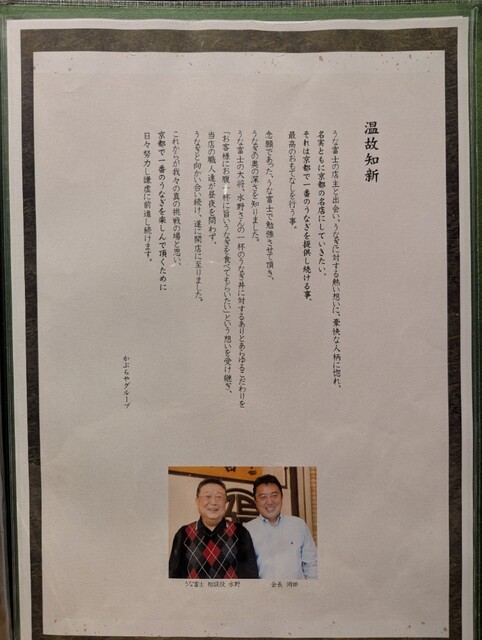 温故知新
うな富士の店主と出会い、うなぎに対する熱い想いに、豪快な人柄に惚れ、
名実ともに京都の名店にしていきたい。
それは京都で一番のうなぎを提供し続ける事、
最高のおもてなしを行う事。
念願であった、うな富士で勉強させて頂き、
うなぎの奥の深さを知りました。
うな富士の大将、水野さんの一杯のうなぎ丼に対するありとあらゆるこだわりを
「お客様にお腹一杯に旨いうなぎを食べてもらいたい」という想いを受け継ぎ、
当店の職人達が昼夜を問わず、
うなぎと向かい合い続け、遂に開店に至りました。
これからが我々の真の挑戦の場と思い、
京都で一番のうなぎを楽しんで頂くために
日々努力し謙虚に前進し続けます。
かぶらやグループ
うな富士 相談役 水野
会長 岡田